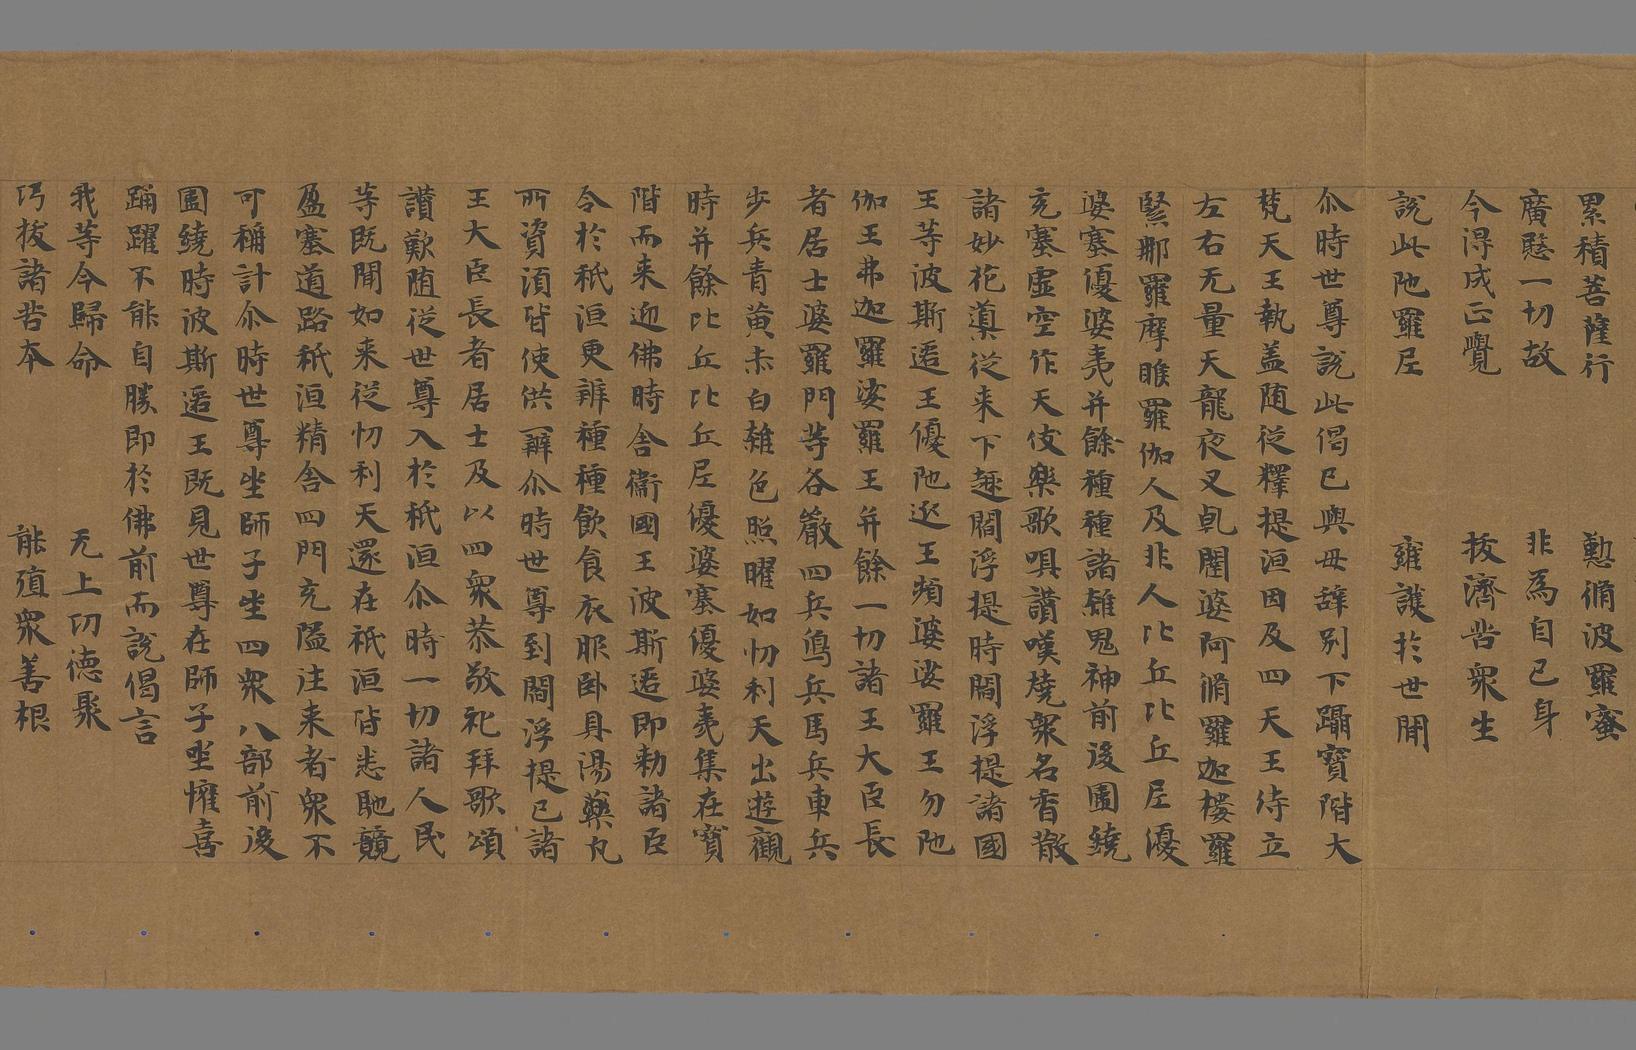 累積菩薩行　慙脩波羅蜜
廣愍一切故　非為自己身
今得成正覺　拔濟苦衆生
說此陁羅尼　雍護於世間
尒時世尊說此偈已與母辝別下躡寳階大
梵天王執盖随從釋提洹因及四天王侍立
左右无量天龍夜叉乹闥婆阿脩羅迦樓羅
緊那羅摩睺羅伽人及非人比丘比丘尼優
婆塞優婆夷并餘種種諸雜鬼神前後圍繞
充塞虛空作天伎樂歌唄讃嘆燒衆名香散
諸妙花導從来下趣閻浮提時閻浮提諸國
王等波斯匿王優陁延王頻婆娑羅王勿陁
伽王弗迦羅娑羅王并餘一切諸王大臣長
者居士婆羅門等各嚴四兵鳥兵馬兵車兵
步兵青黄赤白雜色照曜如忉利天出遊觀
時并餘比丘比丘尼優婆塞優婆夷集在寳
階而来迎佛時舍衞國王波斯匿即勑諸臣
令於秖洹更辦種種飲食衣服卧具湯藥凡
所資湏皆使供辦尒時世尊到閻浮提已諸
王大臣長者居士及以四衆恭敬礼拜歌頌
讃歎随從世尊入於秖洹尒時一切諸人民
等既聞如来從忉利天還在秖洹皆悉馳競
盈塞道路秖洹精舍四門充隘注来者衆不
可稱計尒時世尊坐師子坐四衆八部前後
圍繞時波斯匿王既見世尊在師子坐懽喜
踊躍不能自勝即於佛前而說偈言
我等今歸命　无上㓛德聚
巧拔諸苦本　能殖衆善根